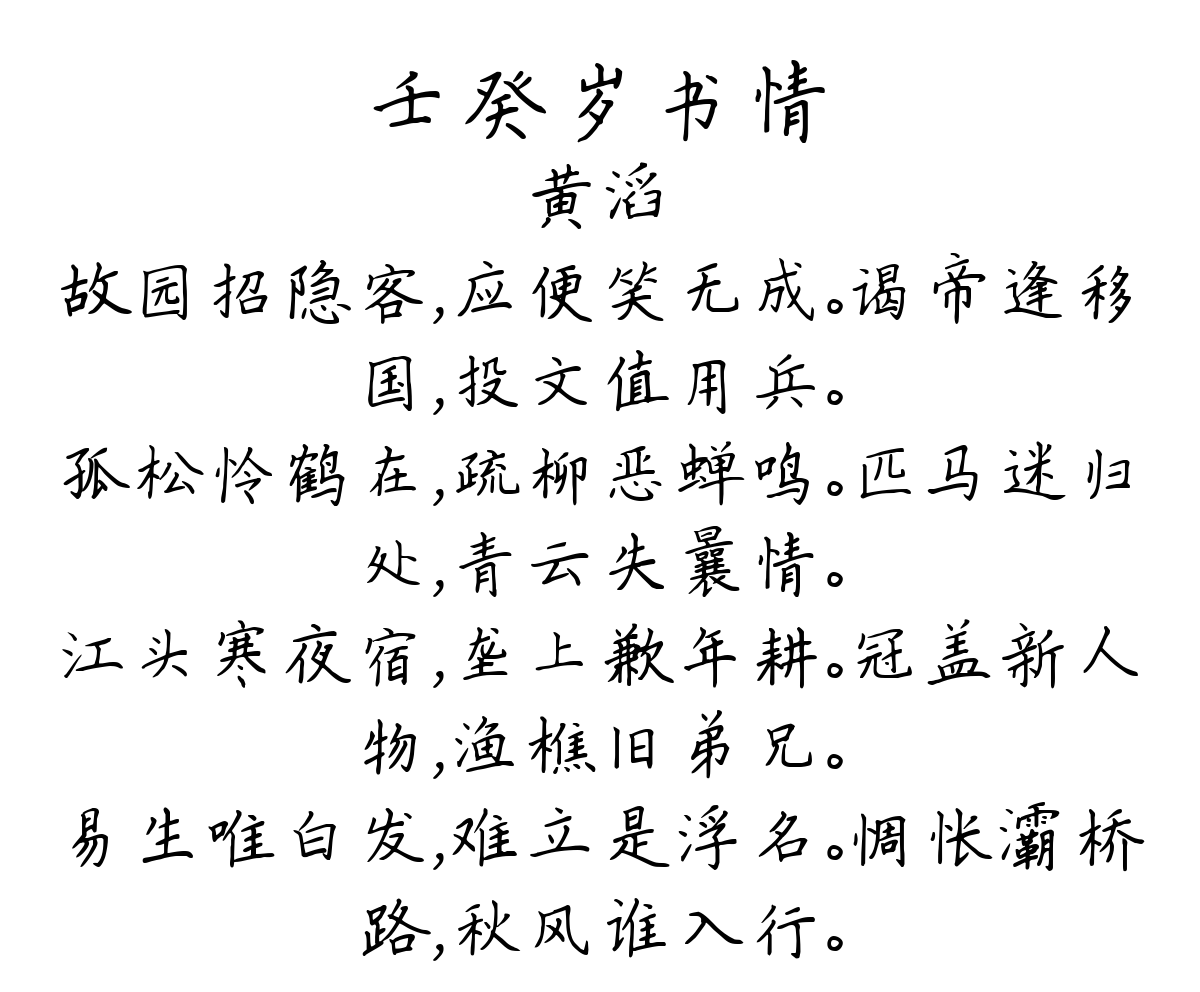 壬癸岁书情
黄滔
故园招隐客,应便笑无成。谒帝逢移
国,投文值用兵。
孤松怜鹤在,疏柳恶蝉鸣。匹马迷归
处,青云失曩情。
江头寒夜宿,垄上歉年耕。冠盖新人
物,渔樵旧弟兄。
易生唯白发,难立是浮名。惆怅灞桥
路,秋风谁入行。